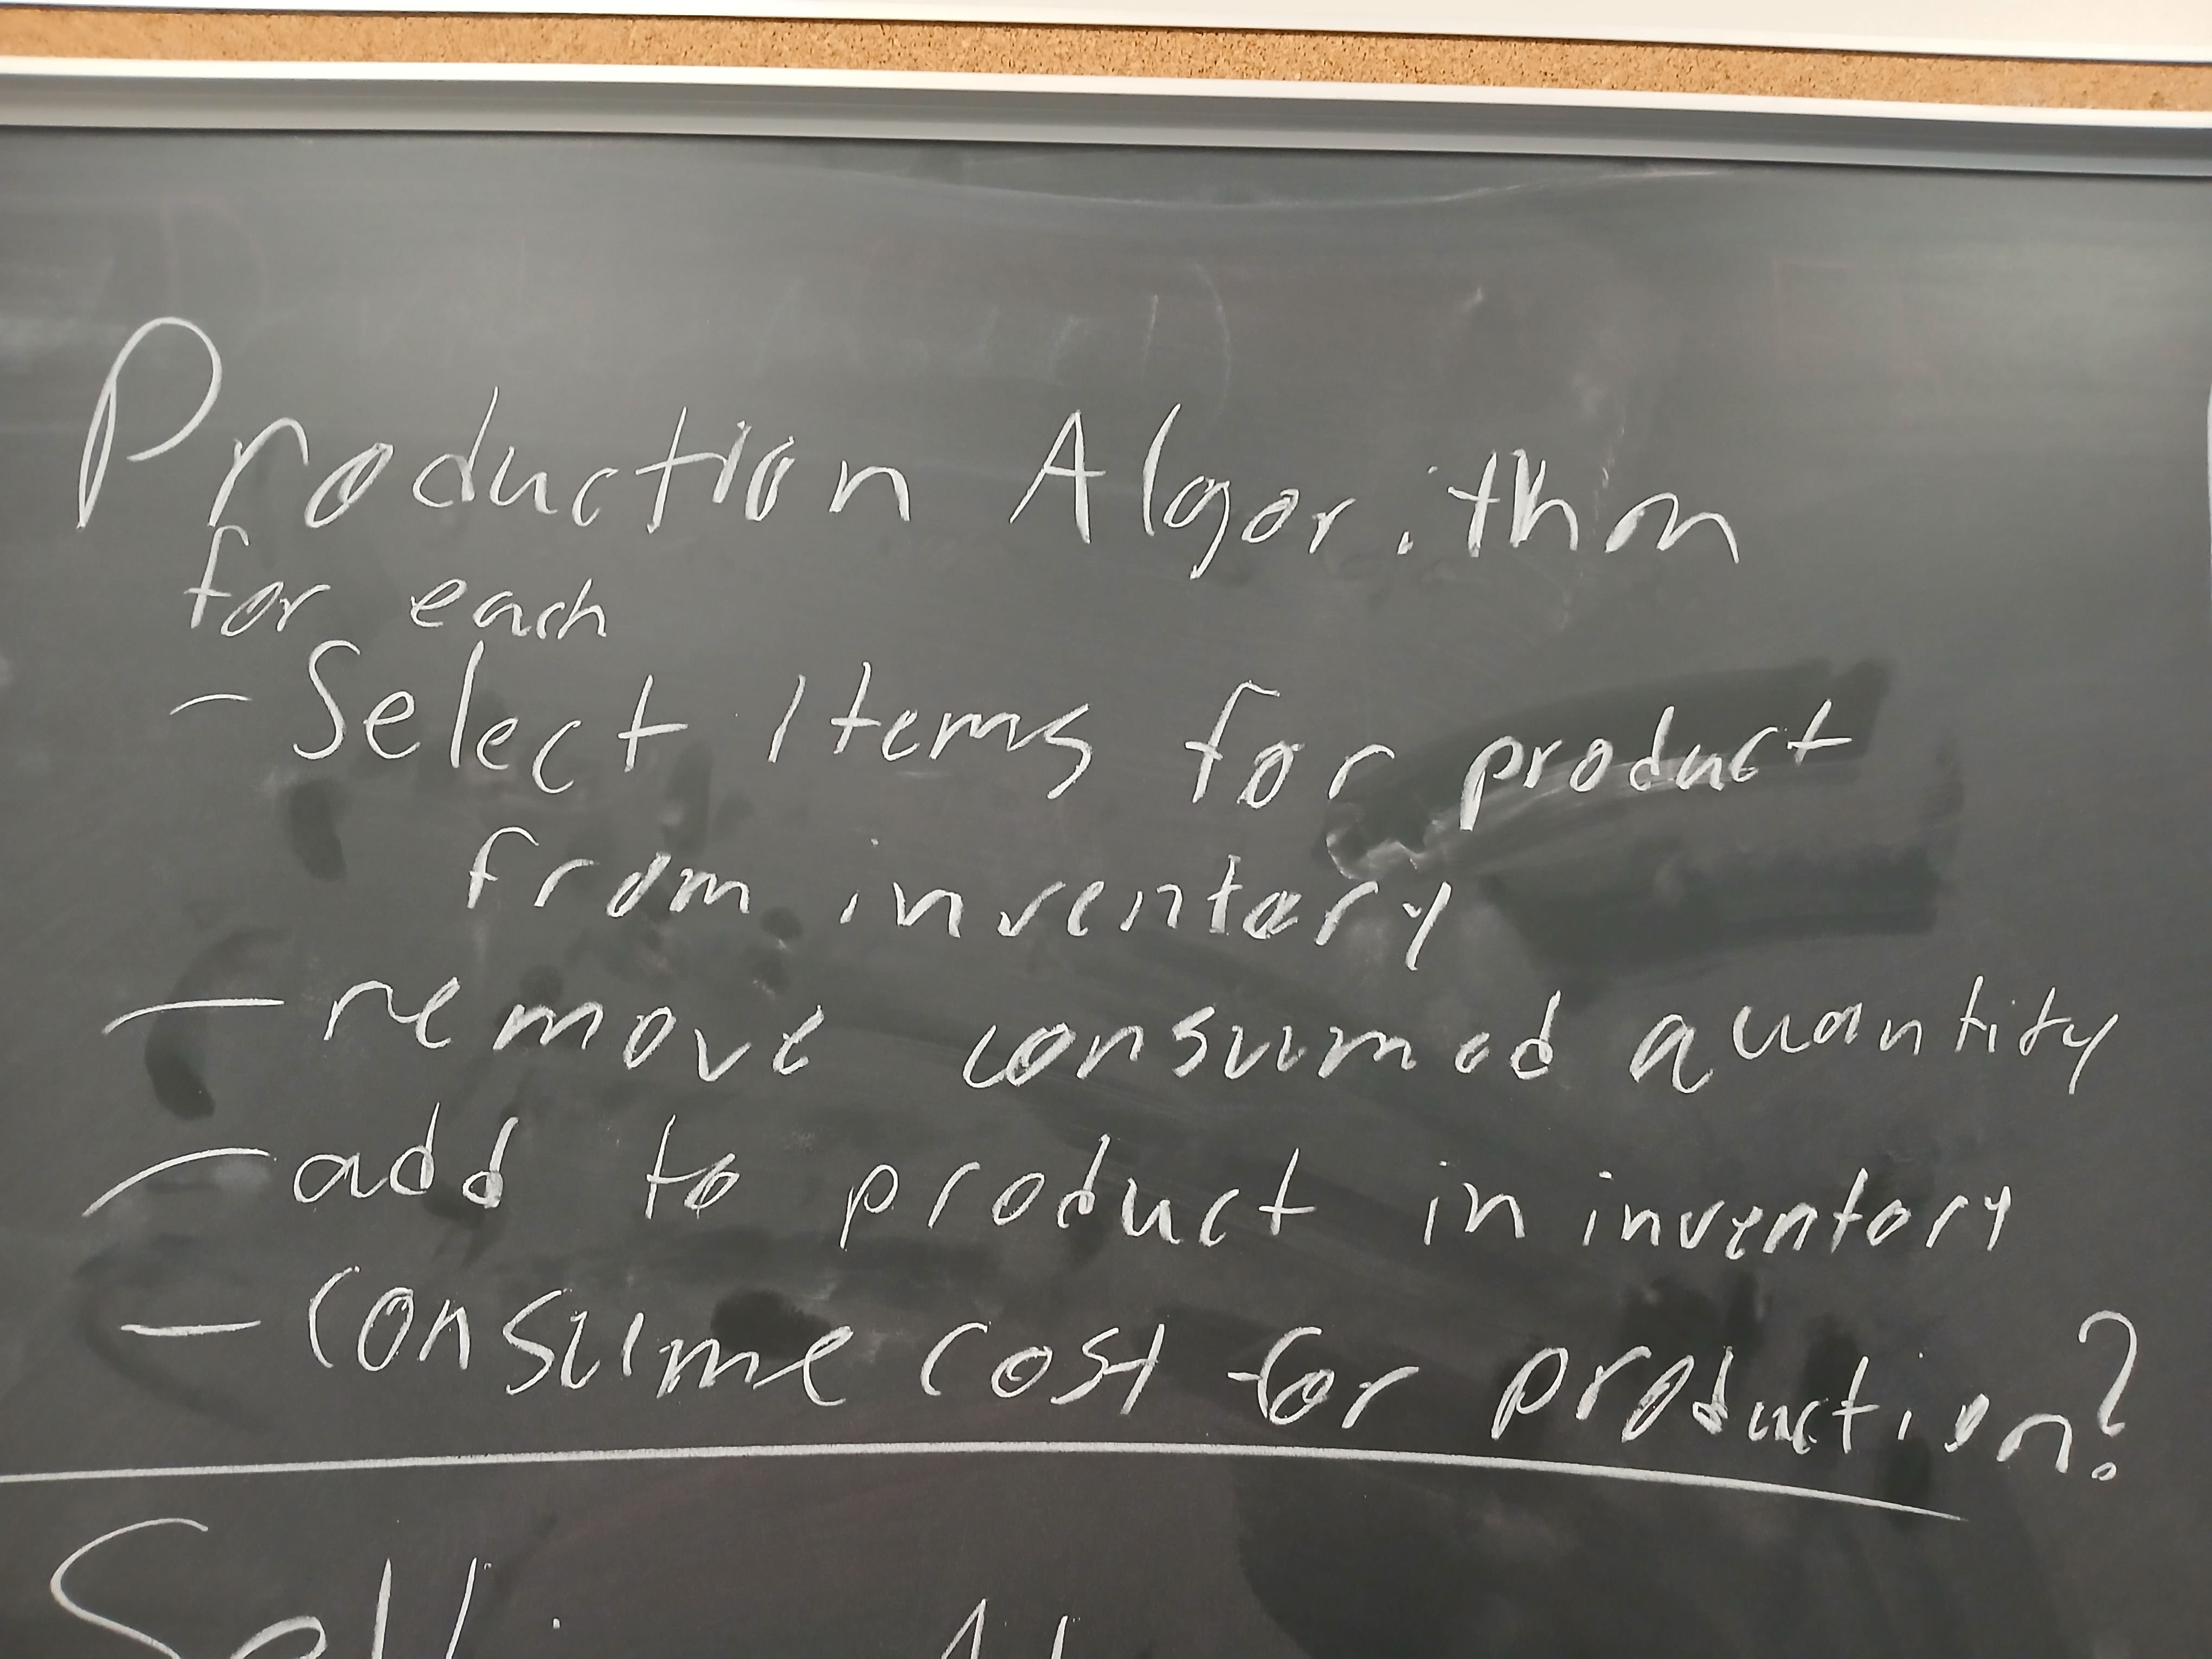 Production Algorithm
for each
- Select Items for product
from inventory
- remove consumed quantity
- add to product in inventory
- consume cost for production?